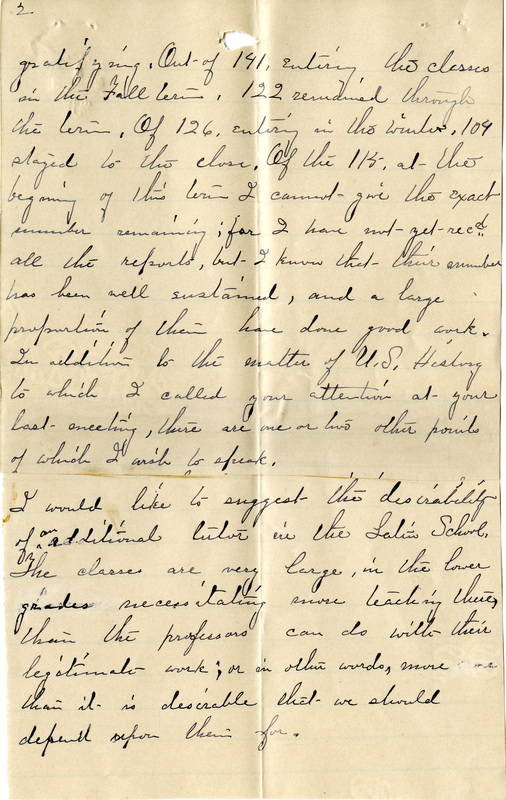 2
gratifying. Out of 141, entering the classes
in the Fall term, 122 remained through
the term. Of 126, entering in the winter, 104
stayed to the close. Of the 115, at the
begining of this term I cannot give the exact
number remaining; for I have not yet recd.
all the reports, but I know that their number
has been well sustained, and a large
proportion of them have done good work.
In addition to the matter of U.S. History
to which I called your attention at your
last meeting, there are one or two other points
of which I wish to speak.
I would like to suggest the desirability
of an additional tutor in the Latin School.
The classes are very large, in the lower
grades necessitating more teaching there,
than the professors can do with their
legitimate work; or in other words, more
than it is desirable that we should
depend upon them for.